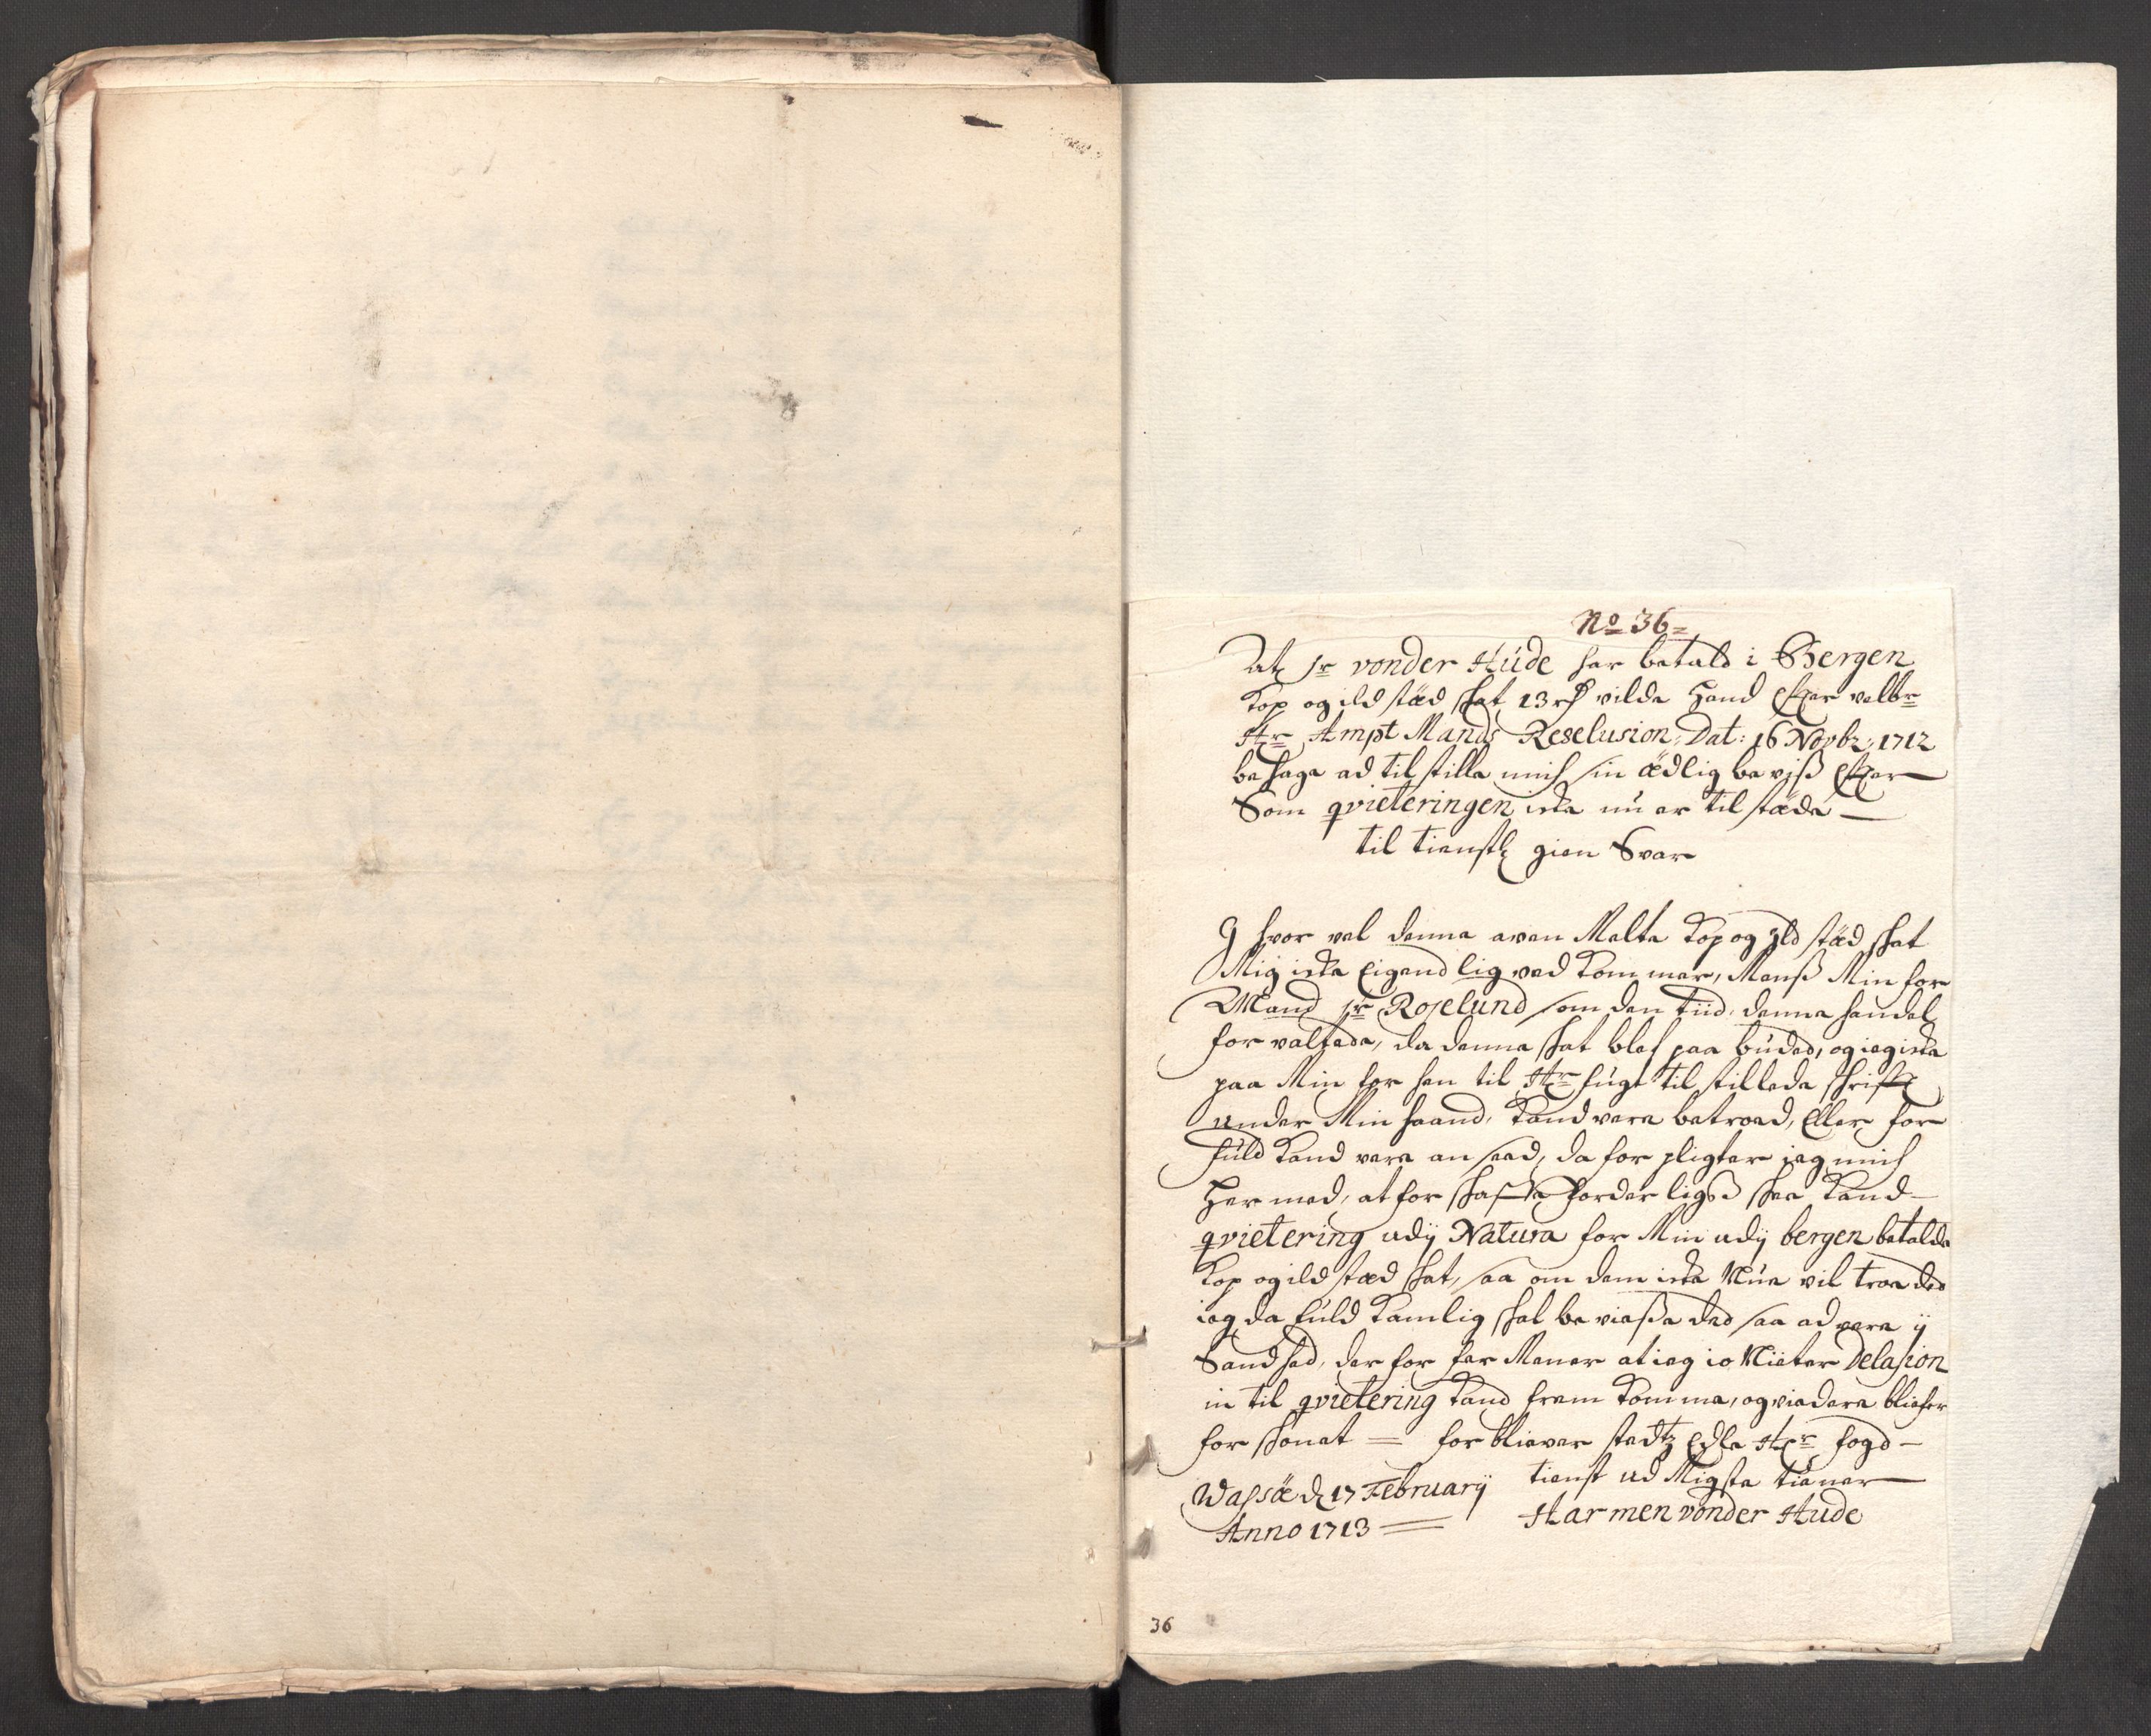 No 36=
At Sr vonder Hude har betald i Bergen
Kop og ild stæd skat 13 rd vilde hand efter velbr
Hr Ampt Mands Reselusion, Dat: 16 Novbr: 1712
behage ad til stille mich sin ædlig beviß efter
Som qvieteringen icke nu er til stæde —
til tienstl gien Svar
I hvor vel denne aven Melte Kop og Ild stæd skat
Mig icke Eigendlig ved kommer, Menß Min for
Mand Sr Roselund som den tiid denne handel
for valtede, da denne skat blef paa buded, og ieg icke
paa Min for hen til Hr fugt til stillede skrift
under Min haand, kand vere betroed, Eller for
fuld kand vere an seed, da for pligter ieg mich
her med, at for skaffe forder ligst skee kand —
qvietering udij Natura for Min udij bergen betalde
Kop og ild stæd skat, saa om dem icke Nue vil troe ded
ieg da fuld kamlig skal be vieße ded saa ad vere ij
Sandhed, der for for Mener at ieg io Nieter Delasion
in til qvietering kand frem komme, og viedere bliefer
for skonet = for bliever stedtz Edle Hr fogd —
Wassöe d 17 Februarij tienst ud Migste tiener
Anno 1713 = Harmen vonder Hude
36